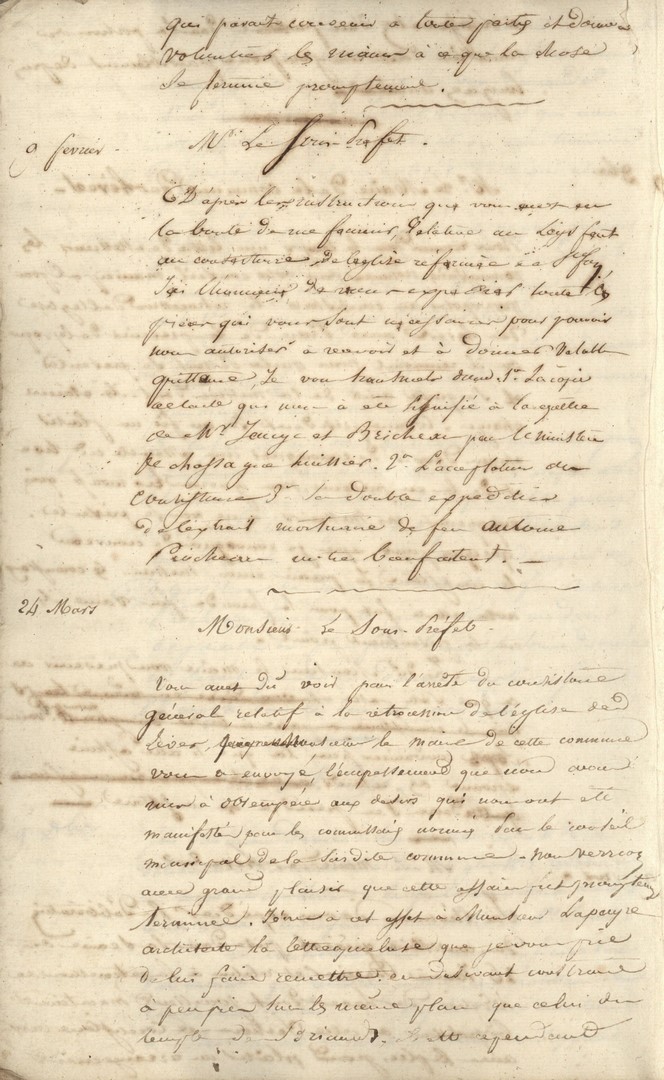 qui parait convenir à toute partie et donner
volontiers les mains à ce que la chose
se termine promptement.
9 fevrier
Mr Le Sous-Préfet.
D'apres les instructions que vous avez eu
la bonté de me fournir, Relative au Legs fait
au consistoire de l'eglise réformée à Ste foy
J'ai l'honneur de vous expédier toute les
pièces qui vous sont nécessaires pour pouvoir
nous autoriser à recevoir et à donner valable
quittance, Je vous transmets donc 1º La copie
de l'acte qui nous à été signifié à la requête
de Mrs et par le ministère
de chassagne huissier. 2º L'acceptation du
Consistoire 3º la double expedition
de l'extrait mortuaire de feu antoine
notre bienfaiteur.
24 Mars
Monsieur Le Sous-Préfet
Vous avez dû voir par l'arrêté du consistoire
général, relatif à la rétrocession de l'église des
Leves, Monsieur le maire de cette commune
vous a envoyé, l'empressement que nous avons
mis à obtempérer aux desirs qui nous ont été
manifestés par les commissaires nommés par le conseil
municipal de la susdite commune - nous verrions
avec grand plaisir que cette affaire fut promptement
terminée. J'écris à cet effet à Monsieur
architecte la lettre que je vous prie
de lui faire remettre. en desirant construire
à peu près sur le même plan que celui du
temple de cependant